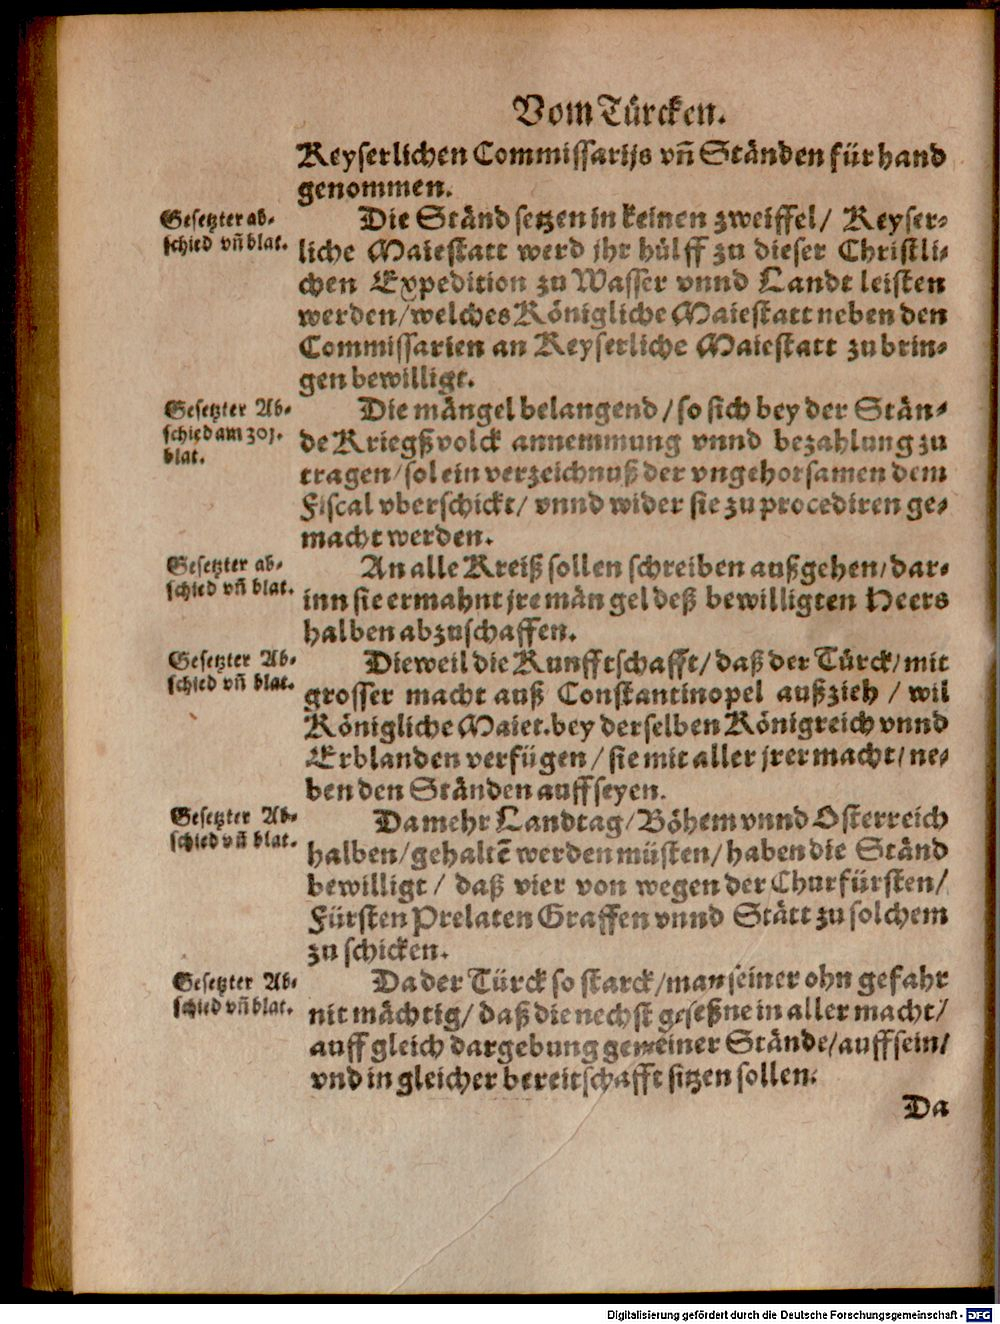 Vom Türcken.
Keyserlichen Commissarijs vñ Ständen für hand
genommen.
Gesetzter ab-
schied vñ blat.
Die Ständ setzen in keinen zweiffel/ Keyser-
liche Maiestatt werd jhr hülff zu dieser Christli-
chen Expedition zu Wasser vnnd Landt leisten
werden/welches Königliche Maiestatt neben den
Commissarien an Keyserliche Maiestatt zubrin-
gen bewilligt.
Gesetzter Ab-
schied am 301.
blat.
Die mängel belangend/so sich bey der Stän-
de Kriegßvolck annemmung vnnd bezahlung zu
tragen/sol ein verzeichnuß der vngehorsamen dem
Fiscal vberschickt/ vnnd wider sie zu procediren ge-
macht werden.
Gesetzter ab-
schied vñ blat.
An alle Kreiß sollen schreiben außgehen/dar-
inn sie ermahnt jre mängel deß bewilligten Heers
halben abzuschaffen.
Gesetzter Ab-
schied vñ blat.
Dieweil die Kunfftschafft/daß der Türck/mit
grosser macht auß Constantinopel außzieh / wil
Königliche Maiet.bey derselben Königreich vnnd
Erblanden verfügen/sie mit aller jrer macht/ne-
ben den Ständen auffseyen.
Gesetzter Ab-
schied vñ blat.
Da mehr Landtag/Böhem vnnd Osterreich
halben/gehaltẽ werden müsten/haben die Ständ
bewilligt/ daß vier von wegen der Churfürsten/
Fürsten Prelaten Graffen vnnd Stätt zu solchem
zu schicken.
Gesetzter Ab-
schied vñ blat.
Da der Türck so starck/man seiner ohn gefahr
nit mächtig/ daß die nechst gesessne in aller macht/
auff gleich dargebung gemeiner Stände/auff sein/
vnd in gleicher bereitschafft sitzen sollen.
Da
Digitalisierung gefördert durch die Deutsche Forschungsgemeinschaft - DFG